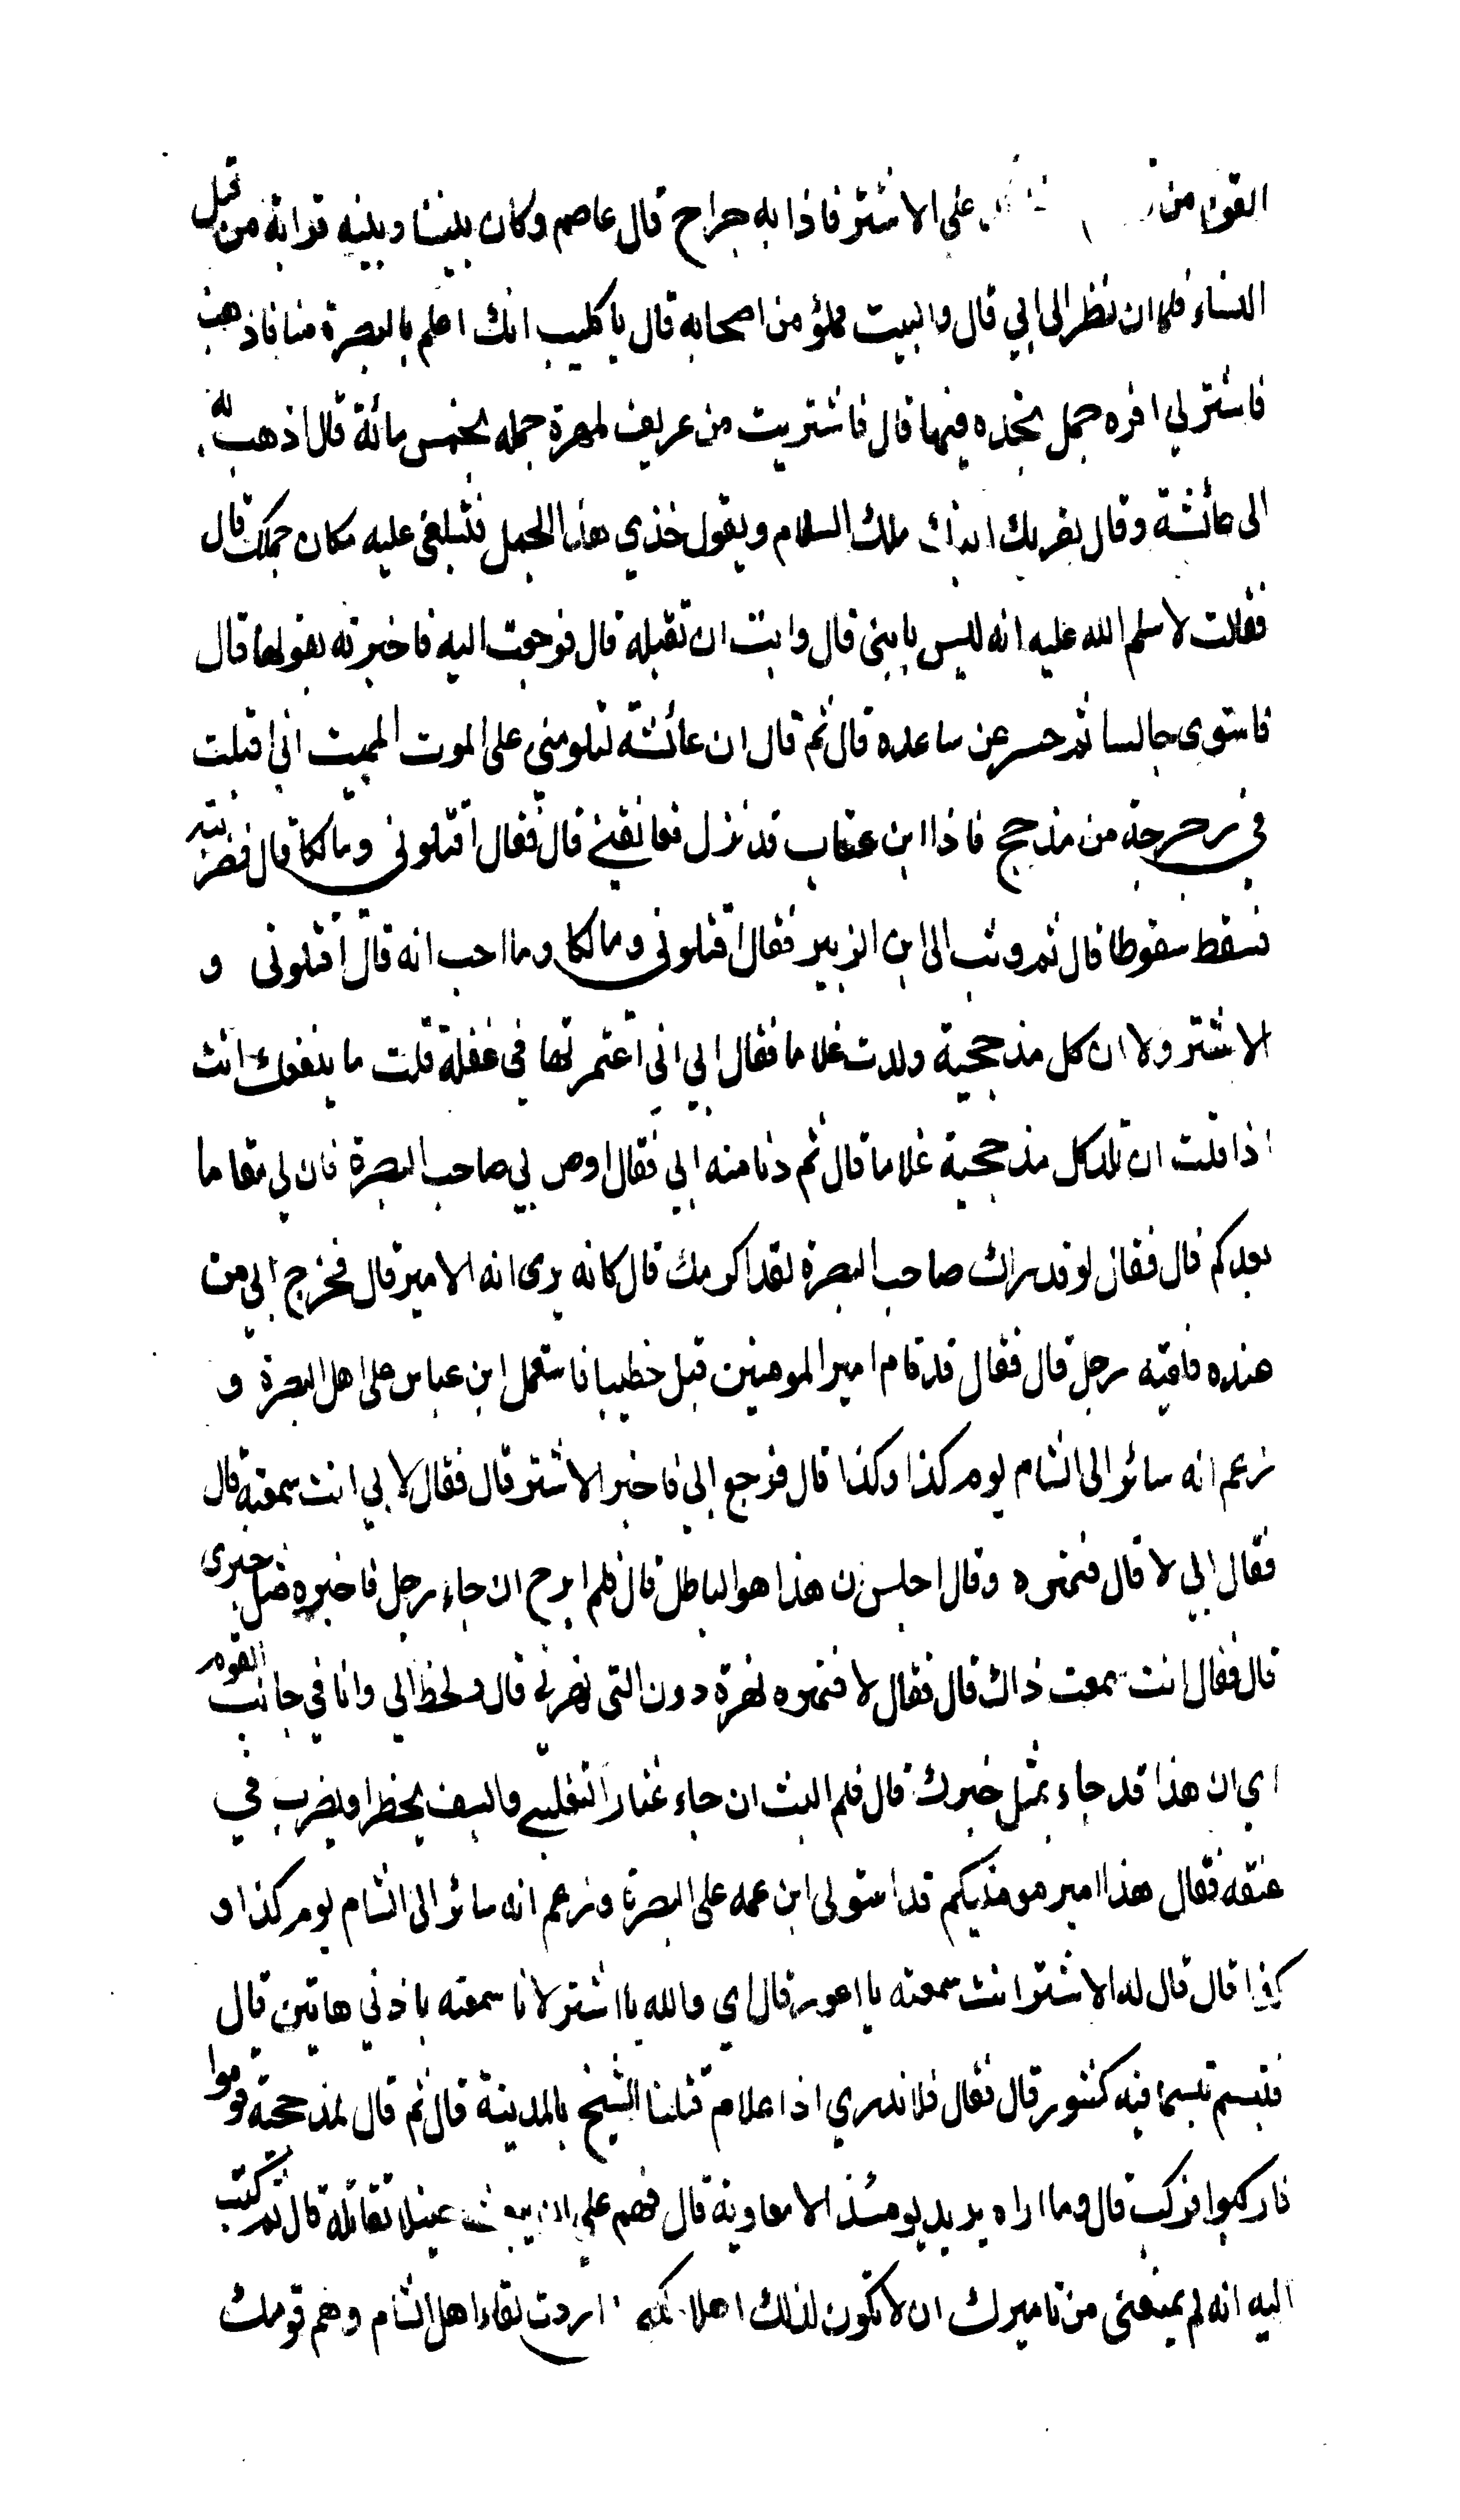 القوم من على الاشتر فاذا به جراح قال عاصم وكان بيننا وبينه قرابة من قبل
النساء فلما ان نظر الى ابي قال والبيت مملؤ من اصحابه قال يا كليب انك اعلم بالبصرة منا فاذهب
فاشتر لي افره جمل نجده فيها قال فاشتريت من عريف لمهرة جمله بخمس مائة قال اذهب به
الى عائشة وقال يقربك ابنك ملك السلام ويقول خذي هذا الجمل فتبلغي عليه مكان جملك قال
فقالت لا سلم الله عليه انه ليس بابني قال وابت ان تقبله قال فرجعت اليه فاخبرته بقولها قال
فاستوى جالسا ثم حسر عن ساعده قال ثم قال ان عائشة لتلومني على الموت المميت اني اقبلت
في رجرجة من مذحج فاذا ابن عتاب قد نزل فعانقني قال فقال اقتلوني ومالكا قال فضربته
فسقط سقوطا قال ثم وثب الى ابن الزبير فقال اقتلوني ومالكا وما احب انه قال اقتلوني و
الاشتر ولا ان كل مذحجية ولدت غلاما فقال ابي اني اعتمرتها في غفلة قلت ما ينفعك انت
اذا قلت ان تلد كل مذحجية غلاما قال ثم دنا منه ابي فقال اوص بي صاحب البصرة فان لي مقاما
بعدكم قال فقال لو قد راك صاحب البصرة لقد اكرمك قال كانه يرى انه الامير قال فخرج ابي من
عنده فلقيه رجل قال فقال قد قام امير المومنين قبل خطيبا فاستعمل ابن عباس على اهل البصرة و
زعم انه سائر الى الشام يوم كذا وكذا قال فرجع ابي فاخبر الاشتر قال فقال لابي انت سمعته قال
فقال ابي لا قال فنهره وقال اجلس ان هذا هو الباطل قال فلم ابرح ان جاء رجل فاخبره مثل خبرى
قال فقال انت سمعت ذاك قال فقال لا فنهره نهرة دون التي نهرني قال ولحظ الي وانا في جانب القوم
اى ان هذا قد جاء بمثل خبرك قال فلم البث ان جاء عتاب التغلبي والسيف يخطر او يضرب في
عنقه فقال هذا امير مومنيكم قد استولى ابن عمه على البصرة وزعم انه سائر الى الشام يوم كذا و
كذا قال قال له الاشتر انت سمعته يا اعور قال اي والله يا اشتر لانا سمعته باذني هاتين قال
فتبسم تبسما فيه كشور قال فقال فلا ندري اذا علام قتلنا الشيخ بالمدينة قال ثم قال لمذحجيته قوموا
فاركبوا فركب قال وما اراه يريد يومئذ الا معاوية قال فهم علي ان يبعث خيلا تقاتله قال ثم كتب
اليه انه لم يمنعني من تاميرك ان لا تكون لذلك اهلا اردت لقاء اهل الشام وهم قومك